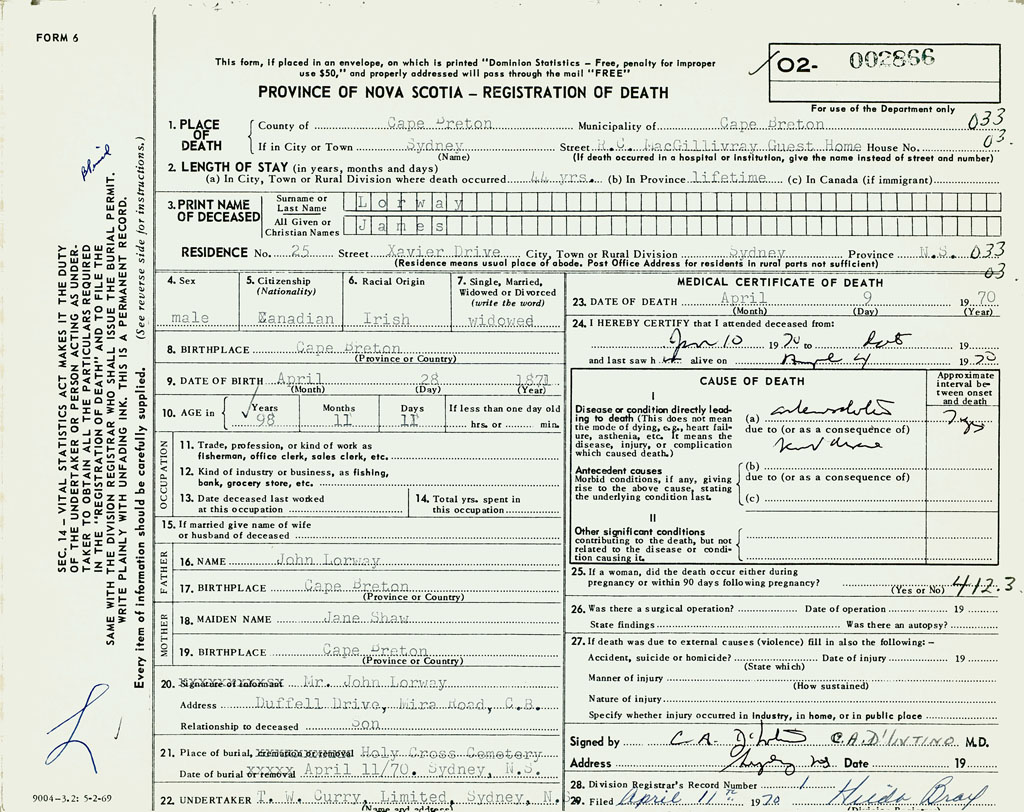 FORM 6
This form, if placed in an envelope, on which is printed "Dominion Statistics – Free, penalty for improper
use $50," and properly addressed will pass through the mail "FREE"
PROVINCE OF NOVA SCOTIA – REGISTRATION OF DEATH
02- 002866
For use of the Department only
033
03.
1. PLACE OF DEATH
County of Cape Breton Municipality of Cape Breton
If in City or Town Sydney Street R.C. MacGillivray Guest Home House No.
(Name) (If death occurred in a hospital or institution, give the name instead of street and number)
2. LENGTH OF STAY (in years, months and days)
(a) In City, Town or Rural Division where death occurred 44 yrs. (b) In Province lifetime (c) In Canada (if immigrant)
3. PRINT NAME OF DECEASED
Surname or Last Name Lorway
All Given or Christian Names James
RESIDENCE No. 25 Street Xavier Drive City, Town or Rural Division Sydney Province N.S. 033
(Residence means usual place of abode. Post Office Address for residents in rural parts not sufficient)
03
4. Sex
male
5. Citizenship
(Nationality)
Canadian
6. Racial Origin
Irish
7. Single, Married,
Widowed or Divorced
(write the word)
widowed
8. BIRTHPLACE Cape Breton
(Province or Country)
9. DATE OF BIRTH April 28 1871
(Month) (Day) (Year)
10. AGE in Years Months Days If less than one day old
98 11 11 hrs. or min.
OCCUPATION
11. Trade, profession, or kind of work as
fisherman, office clerk, sales clerk, etc.
12. Kind of industry or business, as fishing,
bank, grocery store, etc.
13. Date deceased last worked
at this occupation
14. Total yrs. spent in
this occupation
15. If married give name of wife
or husband of deceased
FATHER
16. NAME John Lorway
17. BIRTHPLACE Cape Breton
(Province or Country)
MOTHER
18. MAIDEN NAME Jane Shaw
19. BIRTHPLACE Cape Breton
(Province or Country)
20. Signature of informant Mr. John Lorway
Address Duffell Drive, Mira Road, C.B.
Relationship to deceased Son
21. Place of burial, cremation or removal Holy Cross Cemetery
Date of burial or removal April 11/70. Sydney, N.S.
22. UNDERTAKER T. W. Curry, Limited, Sydney, N.
(Name and address)
MEDICAL CERTIFICATE OF DEATH
23. DATE OF DEATH April 9 1970
(Month) (Day) (Year)
24. I HEREBY CERTIFY that I attended deceased from:
Jan 10 1970 to 19
and last saw h alive on 4 1970
CAUSE OF DEATH
Approximate
interval be-
tween onset
and death
I
Disease or condition directly lead-
ing to death (This does not mean
the mode of dying, e.g., heart fail-
ure, asthenia, etc. It means the
disease, injury, or complication
which caused death.)
(a)
due to (or as a consequence of)
Antecedent causes
Morbid conditions, if any, giving
rise to the above cause, stating
the underlying condition last.
(b)
due to (or as a consequence of)
(c)
II
Other significant conditions
contributing to the death, but not
related to the disease or condi-
tion causing it.
25. If a woman, did the death occur either during
pregnancy or within 90 days following pregnancy?
(Yes or No) 412.3
26. Was there a surgical operation? Date of operation 19
State findings Was there an autopsy?
27. If death was due to external causes (violence) fill in also the following: –
Accident, suicide or homicide? Date of injury 19
(State which)
Manner of injury
(How sustained)
Nature of injury
Specify whether injury occurred in industry, in home, or in public place
Signed by C.A. D'Intino C.A. D'INTINO M.D.
Address Date 19
28. Division Registrar's Record Number 1
29. Filed April 11th 1970 Hilda Bray
(Division Registrar)
SEC. 14 – VITAL STATISTICS ACT MAKES IT THE DUTY
OF THE UNDERTAKER OR PERSON ACTING AS UNDER-
TAKER TO OBTAIN ALL THE PARTICULARS REQUIRED
IN THE "REGISTRATION OF DEATH" AND TO FILE THE
SAME WITH THE DIVISION REGISTRAR WHO SHALL ISSUE THE BURIAL PERMIT.
WRITE PLAINLY WITH UNFADING INK. THIS IS A PERMANENT RECORD.
Every item of information should be carefully supplied. (See reverse side for instructions.)
9004-3.2: 5-2-69